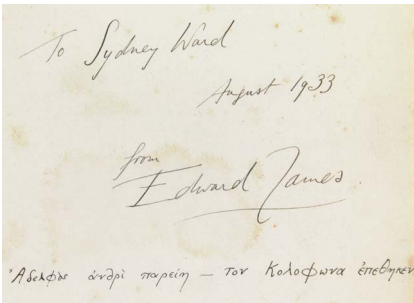 To Sydney Ward
August 1933
from
Edward James
Ἀδελφὸς ἀνδρὶ παρείη — τον Κολοφωνα ἐπεθηκεν